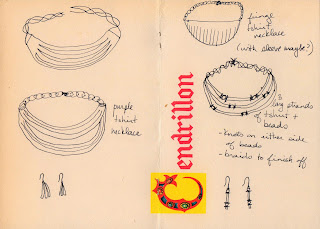 fringe
tshirt
necklace
(with sleeve maybe?)
Cendrillon
purple
tshirt
necklace
long strands
of tshirt +
beads
- knots on either side
of beads
- braids to finish off